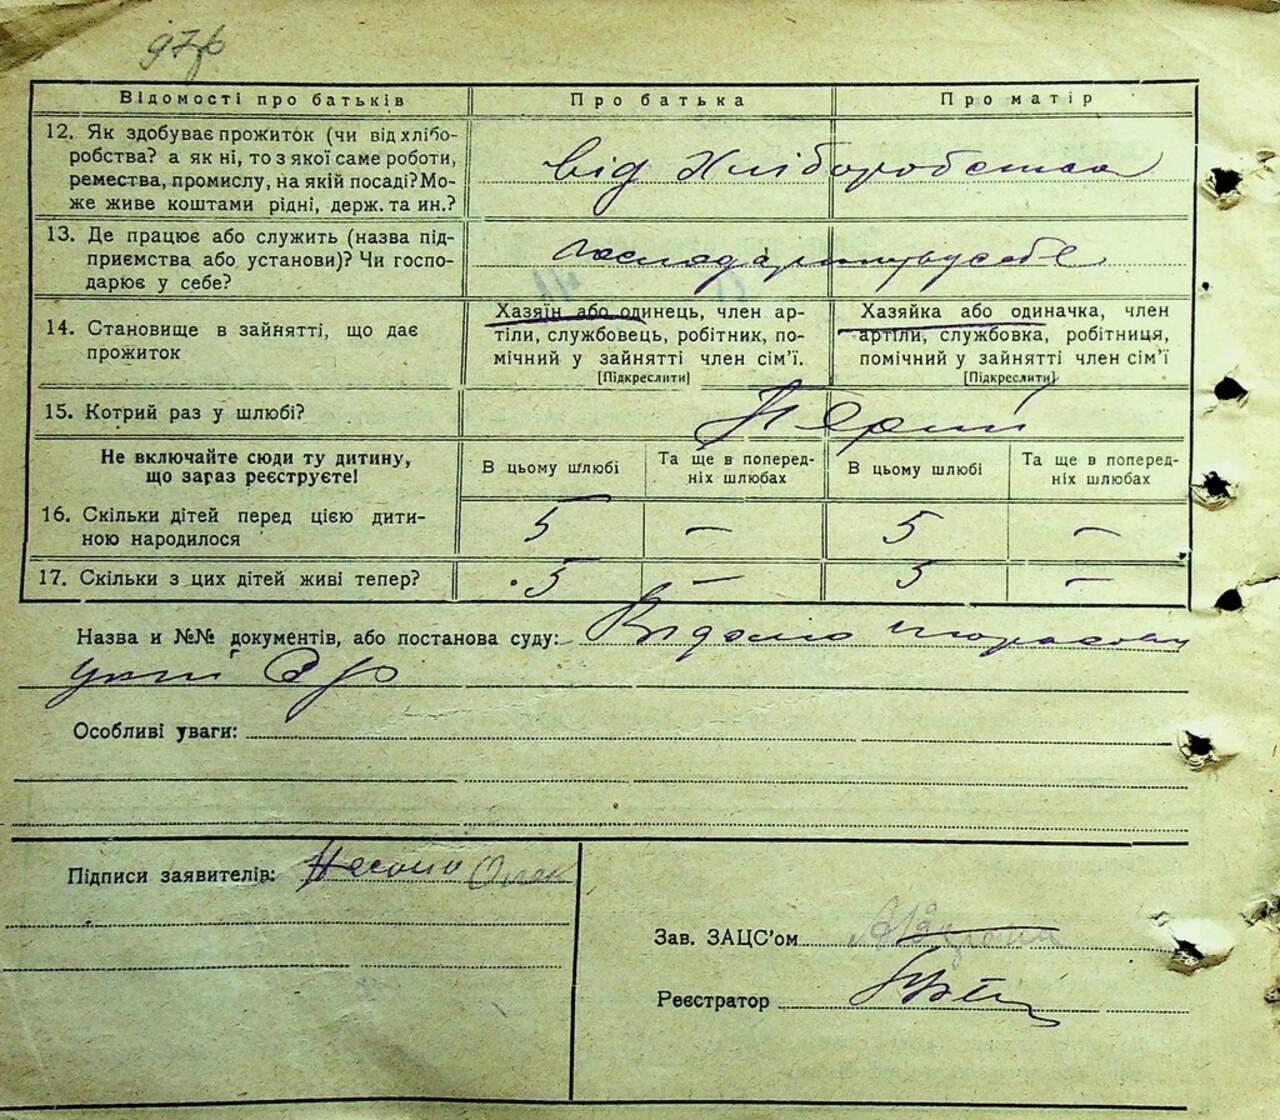 Відомості про батьків
Про батька
Про матір
12. Як здобуває прожиток (чи від хлібо-
робства? а як ні, то з якої саме роботи,
ремества, промислу, на якій посаді? Мо-
же живе коштами рідні, держ. та ин.?
від хліборобства
13. Де працює або служить (назва під-
приємства або установи)? Чи госпо-
дарює у себе?
господарює у себе
14. Становище в зайнятті, що дає
прожиток
Хазяїн або одинець, член ар-
тіли, службовець, робітник, по-
мічний у зайнятті член сім'ї.
[Підкреслити]
Хазяйка або одиначка, член
артіли, службовка, робітниця,
помічний у зайнятті член сім'ї
[Підкреслити]
15. Котрий раз у шлюбі?
Не включайте сюди ту дитину,
що зараз реєструєте!
В цьому шлюбі
Та ще в поперед-
ніх шлюбах
В цьому шлюбі
Та ще в поперед-
ніх шлюбах
16. Скільки дітей перед цією дити-
ною народилося
5 — 5 —
17. Скільки з цих дітей живі тепер?
5 — 5 —
Назва и №№ документів, або постанова суду: Відомо
Особливі уваги:
Підписи заявителів:
Зав. ЗАЦС'ом
Реєстратор